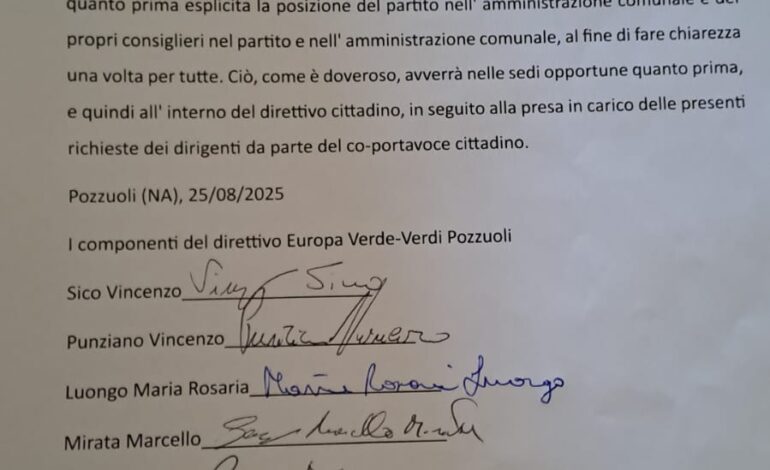 quanto prima esplicita la posizione del partito nell' amministrazione comunale e dei
propri consiglieri nel partito e nell' amministrazione comunale, al fine di fare chiarezza
una volta per tutte. Ciò, come è doveroso, avverrà nelle sedi opportune quanto prima,
e quindi all' interno del direttivo cittadino, in seguito alla presa in carico delle presenti
richieste dei dirigenti da parte del co-portavoce cittadino.
Pozzuoli (NA), 25/08/2025
I componenti del direttivo Europa Verde-Verdi Pozzuoli
Sico Vincenzo
Punziano Vincenzo
Luongo Maria Rosaria Maria Rosaria Luongo
Mirata Marcello